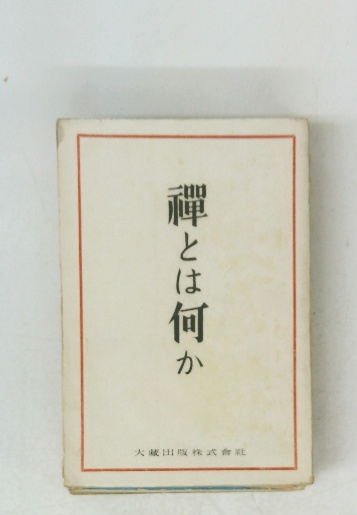 禪とは何か
大藏出版株式會社